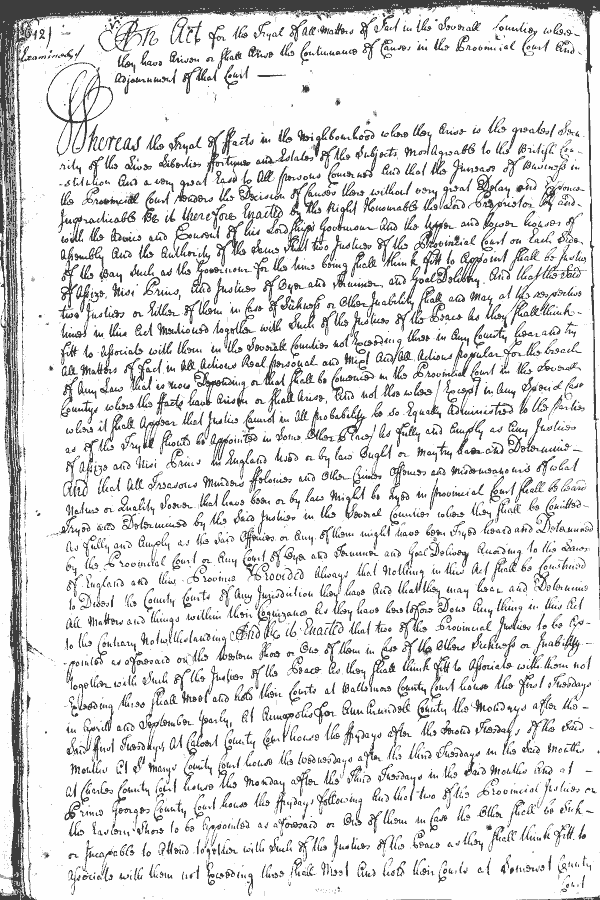 An Act for the Tryal of All Matters of Fact in the Severall Counties where
they have Arisen or Shall Arise the Continuance of Causes in the Provincial Court And
Adjournment of that Court
Whereas the Tryal of Ffacts in the Neighbourhood where they Arise is the greatest Secu-
rity of the Lives Liberties ffortunes and Estates of the Subjects, Most Agreable to the British Con-
stitution And a very great Ease to All persons Concerned And that the Increase of Business in
the Provinciall Court renders the Decision of Causes there without very great Delay and Expence
Impracticable Be it therefore Enacted by the Right Honourable the Lord Proprietor by And
with the Advice and Consent of his Lordships Governour And the Upper and Lower houses of
Assembly And the Authority of the Same That two Justices of the Provincial Court on Each Side
of the Bay Such as the Governour for the time being Shall think ffitt to Appoint Shall be Justices
of Assize, Nisi Prius, And Justices of Oyer and Terminer and Goal Delivery. And that the said
two Justices or Either of them in Case of Sickness or Other Inability Shall and May at the respective
times in this Act Mentioned together with Such of the Justices of the Peace As they Shall think
fitt to Associate with them in the Severall Counties not Exceeding three in Any County hear and try
All Matters of Fact in All Actions Real personal and Mixt And All Actions popular for the breach
of Any Law that is now Depending or that shall be Commenced in the Provincial Court in the Several
Countys where the ffacts have Arisen or Shall Arise, And not Elsewhere/ Except in Any Special Case
where it Shall Appear that Justice Cannot in All probability be so Equally Administred to the parties
as if the Tryall Should be Appointed in Some Other Place/ As fully and Amply as Any Justices
of Assize and Nisi Prius in England Used or by law Ought or may try hear and Determine
And that All Treasons Murders ffelonies and Other Crimes Offences and misdemeanours of what
Nature or Quality Soever that have been or by law Might be tryed in Provincial Court Shall be heard
Tryed and Determined by the Said Justices in the Several Counties where they Shall be Comitted
As fully and Amply as the Said Offences or Any of them might have been Tryed heard and Determined
by the Provincial Court or Any Court of Oyer and Terminer and Goal Delivery According to the Laws
of England and this Province Provided Always that Nothing in this Act Shall be Construed
to Divest the County Courts of Any Jurisdiction they have And that they may hear and Determine
All Matters and things within their Cognizance As they have heretofore Done Any thing in this Act
to the Contrary Notwithstanding And be it Enacted that two of the Provincial Justices to be Ap-
pointed as aforesaid on the Western Shore or One of them in Case of the Others Sickness or Inability
together with Such of the Justices of the Peace As they Shall think fitt to Associate with them not
Exceeding three Shall Meet and hold their Courts at Baltemore County Court house the first Tuesdays
in Aprill and September Yearly, At Annapolis for Ann Arundell County the Mondays after the
Said first Tuesdays, At Calvert County Court house the ffrydays after the Second Tuesdays of the Said
Months At St Marys County Court house the Wednesdays after the third Tuesdays in the Said Months
At Charles County Court house the Monday after the Third Tuesdays in the Said Months And at
Prince Georges County Court house the ffrydays following And that two of the Provincial Justices on
the Eastern Shore to be Appointed as aforesaid or One of them in Case the Other Shall be Sick
or Incapable to Attend together with Such of the Justices of the Peace as they Shall think fitt to
Associate with them not Exceeding three Shall Meet And hold their Courts at Somerset County
Court